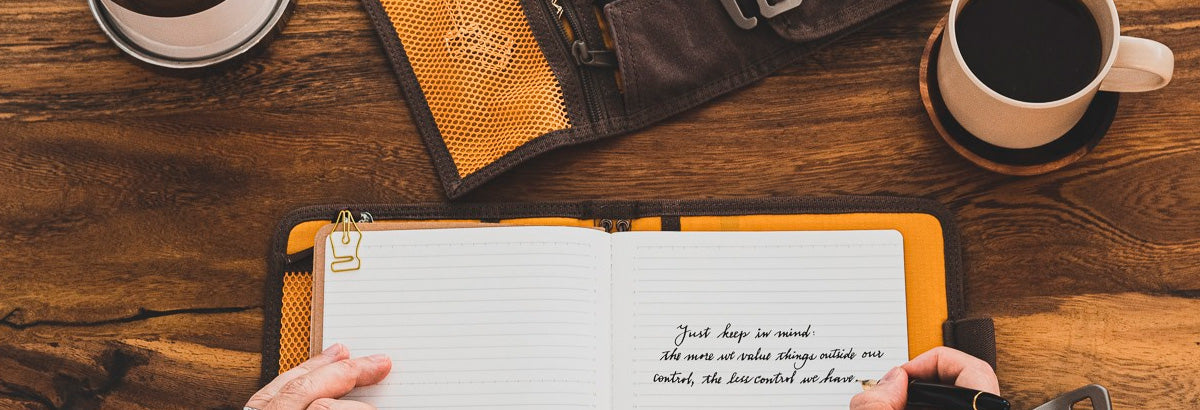 Just keep in mind:
the more we value things outside our
control, the less control we have.